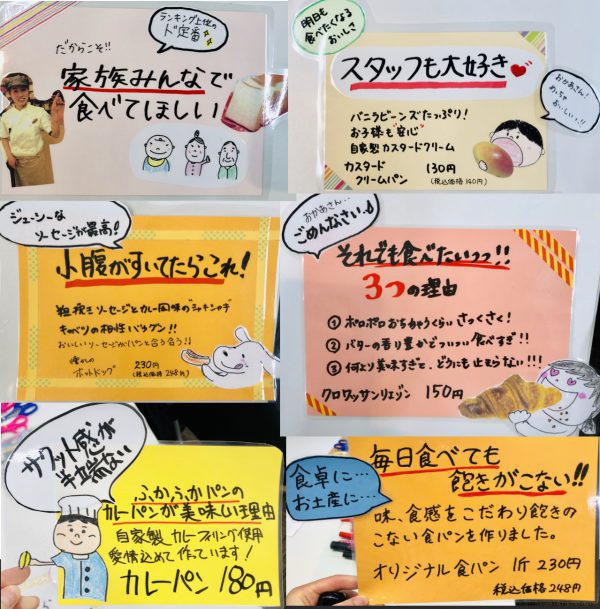 ランキング上位の
ド定番
だからこそ!!
家族みんなで
食べてほしい
明日も
食べたくなる
おいしさ
スタッフも大好き
おかあさん!
めっちゃ
おいしい!!
バニラビーンズたっぷり!
お子様も安心
自家製カスタードクリーム
カスタード
クリームパン
130円
(税込価格140円)
ジューシーな
ソーセージが最高!
小腹がすいてたらこれ!
粗挽きソーセージとカレー風味のシャキシャキ
キャベツの相性バツグン!!
おいしいソーセージがパンと合う合う!!
懐かしの
ホットドッグ
230円
(税込価格248円)
おかあさん…
ごめんなさい
それでも食べたいっっ!!
3つの理由
① ホロホロおちちゃうくらいさっくさく!
② バターの香り豊かでついつい食べすぎ!!
③ 何より美味すぎて、どうにも止まらない!!!
クロワッサンリエゾン 150円
サクット感が
半端ない
ふかふかパンの
カレーパンが美味しい理由
自家製カレーフィリング使用
愛情込めて作っています!
カレーパン 180円
食卓に…
お土産に…
毎日食べても
飽きがこない!!
味、食感をこだわり飽きの
こない食パンを作りました。
オリジナル食パン 1斤 230円
税込価格248円